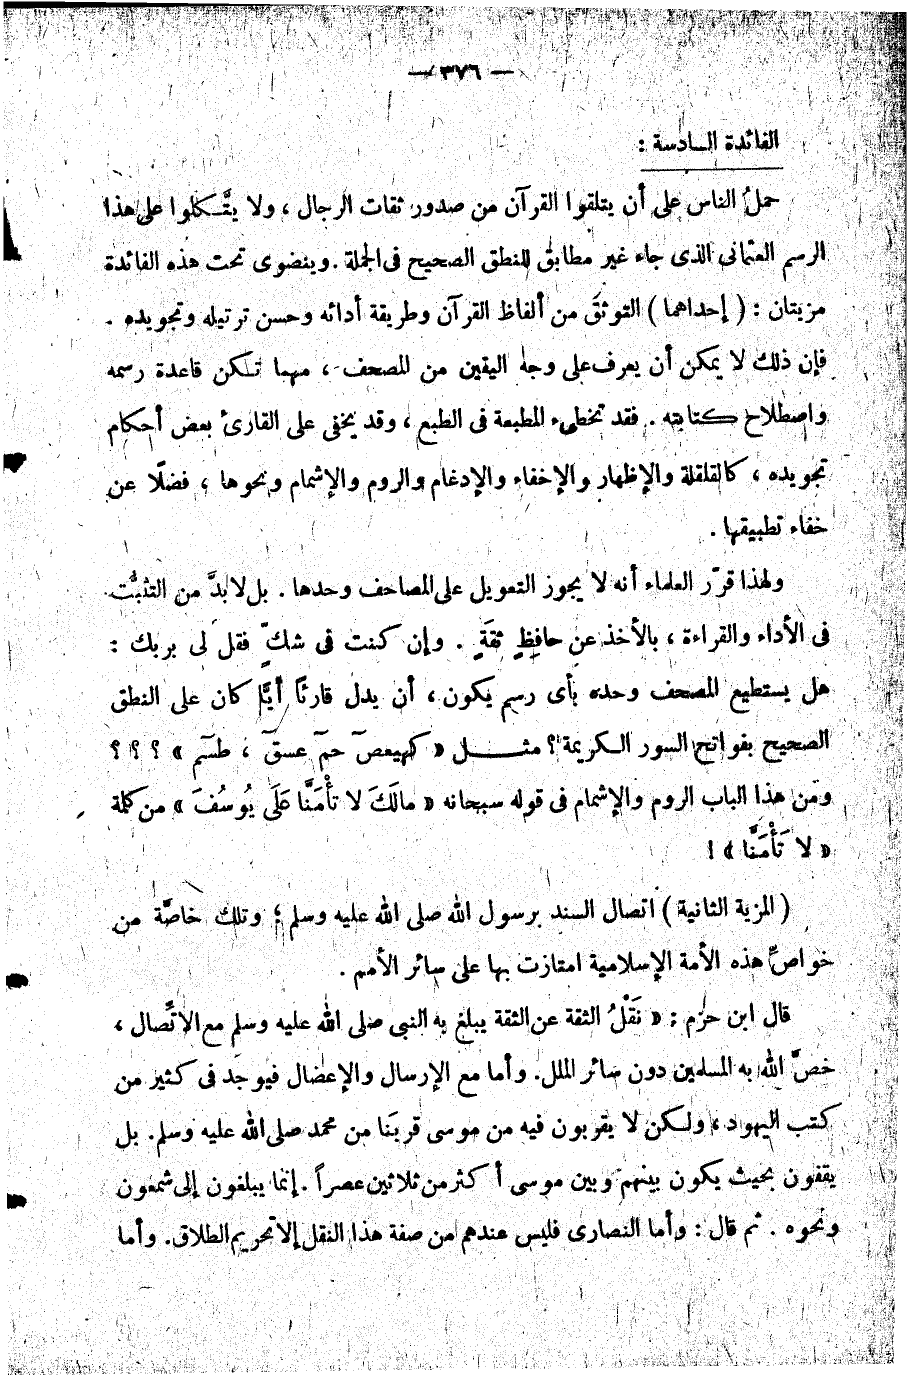 — ٣٧٦ —
الفائدة السادسة :
حملُ الناس على أن يتلقوا القرآن من صدور ثقات الرجال ، ولا يتَّكلوا على هذا
الرسم العثمانى الذى جاء غير مطابق للنطق الصحيح فى الجملة . وينضوى تحت هذه الفائدة
مزيتان : ( إحداهما ) التوثقَ من ألفاظ القرآن وطريقة أدائه وحسن ترتيله وتجويده .
فإن ذلك لا يمكن أن يعرف على وجه اليقين من المصحف ، مهما تكن قاعدة رسمه
واصطلاح كتابته . فقد تخطىء المطبعة فى الطبع ، وقد يخفى على القارئ بعض أحكام
تجويده ، كالقلقلة والإظهار والإخفاء والإدغام والروم والإشمام ونحوها ، فضلًا عن
خفاء تطبيقها .
ولهذا قرّر العلماء أنه لا يجوز التعويل على المصاحف وحدها . بل لابدَّ من التثبُّت
فى الأداء والقراءة ، بالأخذ عن حافِظٍ ثِقَةٍ . وإن كنت فى شكٍّ فقل لى بربك :
هل يستطيع المصحف وحده بأى رسم يكون ، أن يدل قارئًا أيًّا كان على النطق
الصحيح بفواتح السور الكريمة ؟ مثــل « كهيعصَ حمَ عسقَ ، طسَم » ؟ ؟ ؟
ومن هذا الباب الروم والإشمام فى قوله سبحانه « مالَكَ لا تأْمَنَّا عَلَى يُوسُفَ » من كلمة
« لا تَأْمَنَّا » !
( المزية الثانية ) اتصال السند برسول الله صلى الله عليه وسلم ؛ وتلك خاصَّة من
خواصِّ هذه الأمة الإسلامية امتازت بها على سائر الأمم .
قال ابن حزم : « نَقْلُ الثقة عن الثقة يبلغ به النبى صلى الله عليه وسلم مع الاتِّصال ،
خصَّ الله به المسلمين دون سائر الملل. وأما مع الإرسال والإعضال فيوجَد فى كثير من
كتب اليهود ، ولكن لا يقربون فيه من موسى قربَنا من محمد صلى الله عليه وسلم . بل
يقفون بحيث يكون بينهم وبين موسى أكثر من ثلاثين عصراً . إنما يبلغون إلى شمعون
ونحوه . ثم قال : وأما النصارى فليس عندهم من صفة هذا النقل إلا تحريم الطلاق. وأما